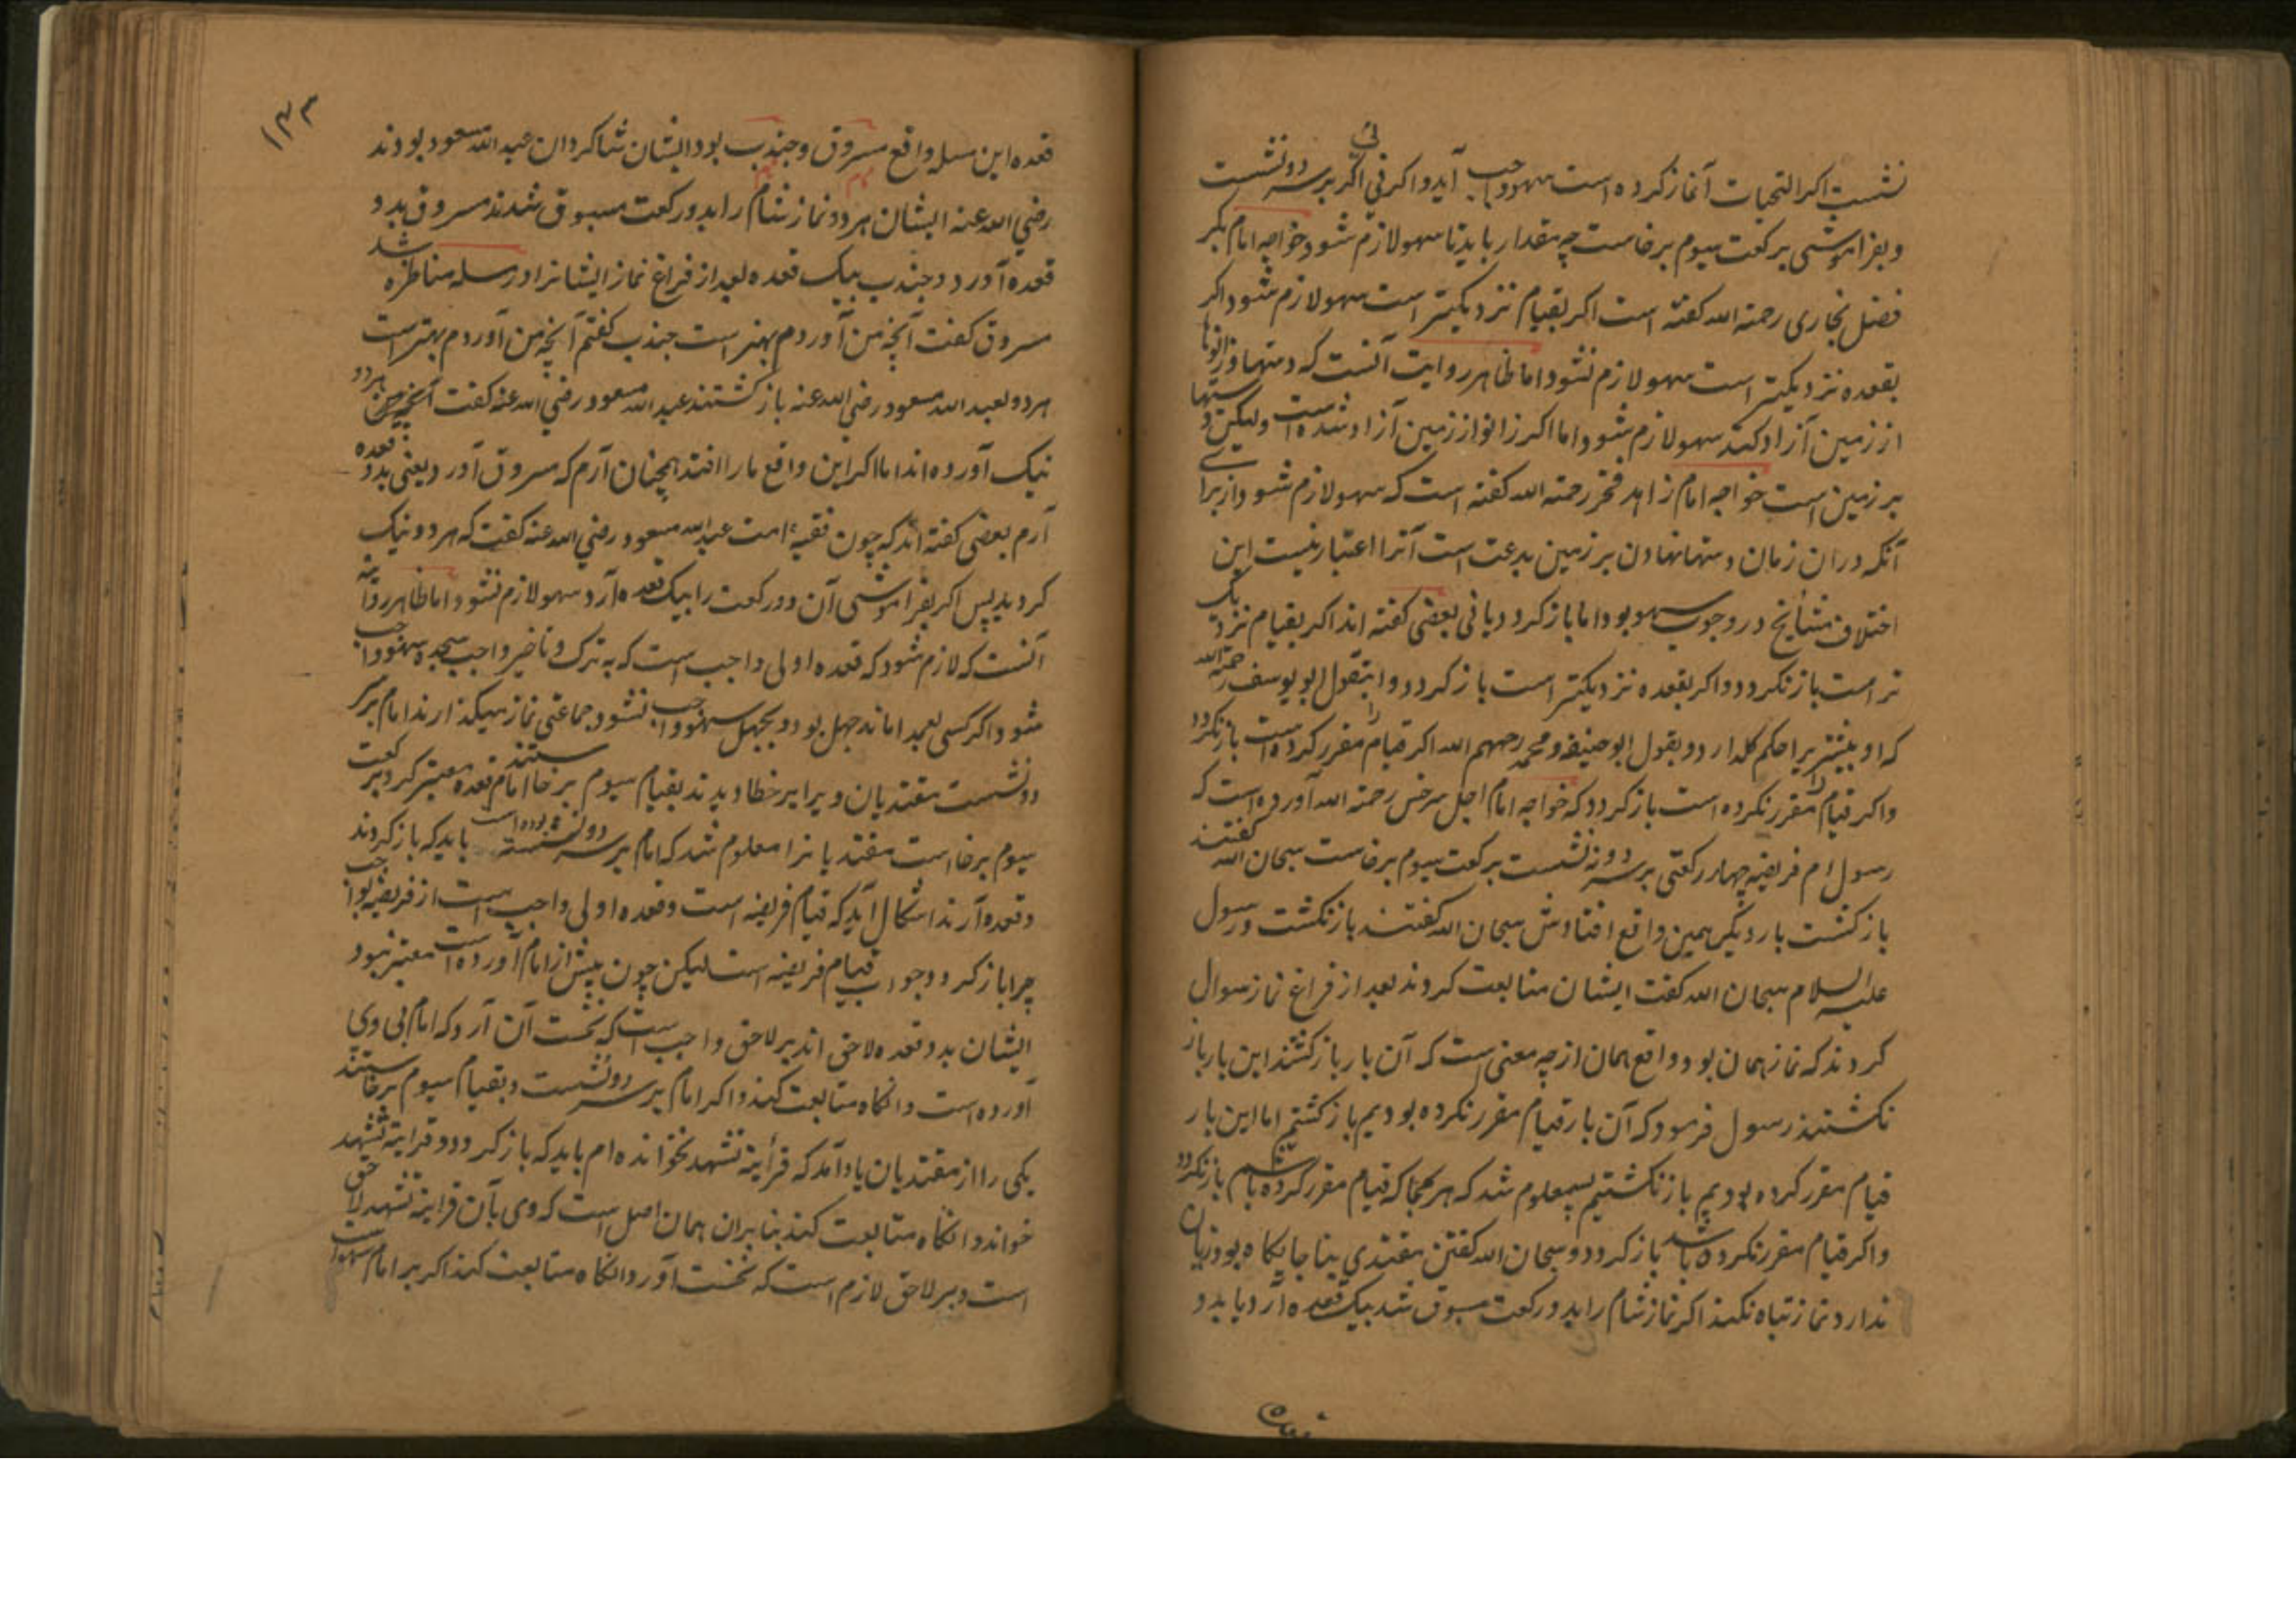 نشست اکر التحیات آغاز کرده است سهو واجب آید و اکر نی اکر بر سر دو نشست
و بفراموشی برکعت سیوم برخاست چه مقدار باید تا سهو لازم شود خواجه امام بکر
فضل بخاری رحمة الله کفته است اکر بقیام نزدیکتر است سهو لازم شود اکر
بقعده نزدیکتر است سهو لازم نشود اما ظاهر روایت آنست که دستها و زانوها
از زمین آزاد کند سهو لازم شود اما اکر زانو از زمین آزاد شده است ولیکن دستها
بر زمین است خواجه امام زاهد فخر رحمة الله کفته است که سهو لازم شود از برای
آنکه دران زمان دستها نهادن بر زمین بدعت است آنرا اعتبار نیست این
اختلاف مشایخ در وجوب سهو بود اما باز کردد یا نی بعضی کفته اند اکر بقیام نزدیک
تر است باز نکردد و اکر بقعده نزدیکتر است باز کردد و این قول ابو یوسف رحمة الله
که او بیشتر را حکم کل دارد و بقول ابو حنیفه و محمد رحهم الله اکر قیام را مقرر کرده است باز نکردد
و اکر قیام را مقرر نکرده است باز کردد که خواجه امام اجل سرخس رحمة الله آورده است که
رسول ام فریضه چهار رکعتی بر سر دو نه نشست برکعت سیوم برخاست سبحان الله کفتند
باز کشت بار دیکر همین واقع افتادش سبحان الله کفتند باز نکشت و رسول
علیه السلام سبحان الله کفت ایشان متابعت کردند بعد از فراغ نماز سوال
کردند که نماز همان بود و واقع همان از چه معنی است که آن بار باز کشتند این بار باز
نکشتند رسول فرمود که آن بار قیام مقرر نکرده بودیم باز کشتیم اما این بار
قیام مقرر کرده بودیم باز نکشتیم پس معلوم شد که هر کجا که قیام مقرر کرده باشیم باز نکردد
و اکر قیام مقرر نکرده باشد باز کردد و سبحان الله کفتن مقتدی بنا جایکاه بود زیان
ندارد نماز تباه نکند اکر نماز شام را بدو رکعت مسبوق شد بیک قعده آرد یا بدو
قعده
۱۴۳
قعده این مسله واقع مسروق و جندب بود ایشان شاکردان عبد الله مسعود بودند
رضی الله عنه ایشان هر دو نماز شام را بدو رکعت مسبوق شدند مسروق بدو
قعده آورد و جندب بیک قعده بعد از فراغ نماز ایشانرا در مسله مناظره شد
مسروق کفت آنچه من آوردم بهتر است جندب کفتم آنچه من آوردم بهتر است
هر دو بعبد الله مسعود رضی الله عنه باز کشتند عبد الله مسعود رضی الله عنه کفت آنچه هر دو
نیک آورده اند اما اکر این واقع مارا افتد همچنان آرم که مسروق آورد یعنی بدو قعده
آرم بعضی کفته اند که چون فقیه امت عبد الله مسعود رضی الله عنه کفت که هر دو نیک
کردید پس اکر بفراموشی آن دو رکعت را بیک قعده آرد سهو لازم نشود اما ظاهر روایته
آنست که لازم شود که قعده اولی واجب است که به ترک و تاخیر واجب سجده سهو واجب
شود اکر کسی بعمد اماند جهل بود و بجهل سهو واجب نشود جماعتی نماز میکذارند امام بر سر
دو نشست مقتدیان ویرا بر خطا دیدند بقیام سیوم برخاستند امام قعده معتبر کرد برکعت
سیوم برخاست مقتدیانرا معلوم شد که امام بر سر دو نشسته بوده است باید که باز کردند
و قعده آرند اشکال آید که قیام فریضه است و قعده اولی واجب است از فریضه بواجب
چرا باز کردد جواب قیام فریضه است لیکن چون پیش از امام آورده است معتبر نبود
ایشان بدو قعده لاحق اند بر لاحق واجب است که نخست آن آرد که امام بی وی
آورده است و انکاه متابعت کند و اکر امام بر سر دو نشست و بقیام سیوم برخاستند
یکی را از مقتدیان یاد آمد که قرأیة تشهد نخوانده ام باید که باز کردد و قرایة تشهد
خواند و انکاه متابعت کند بنا بران همان اصل است که وی بآن قرایة تشهد لاحق
است و بر لاحق لازم است که نخست آورد و انکاه متابعت کند اکر بر امام سهو است